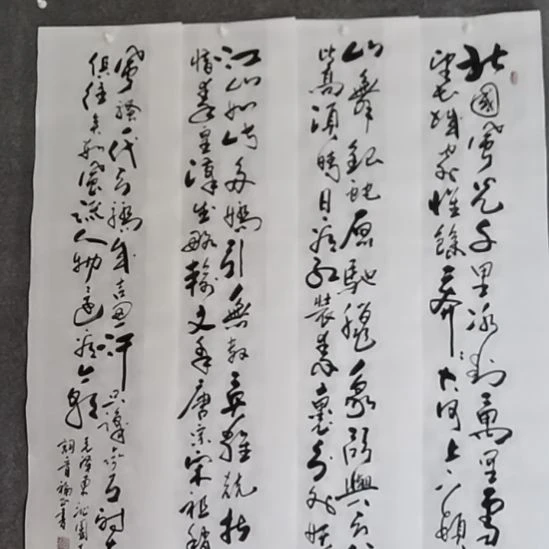 北國風光千里冰封萬里雪
望長城內外惟餘莽莽大河上下頓
山舞銀蛇原馳蠟象欲與天公
比高須晴日看紅裝素裹分外妖
江山如此多嬌引無數英雄競折
惜秦皇漢武略輸文采唐宗宋祖稍
風騷一代天驕成吉思汗只識彎弓射大
俱往矣數風流人物還看今朝
毛澤東沁園春
詞 書